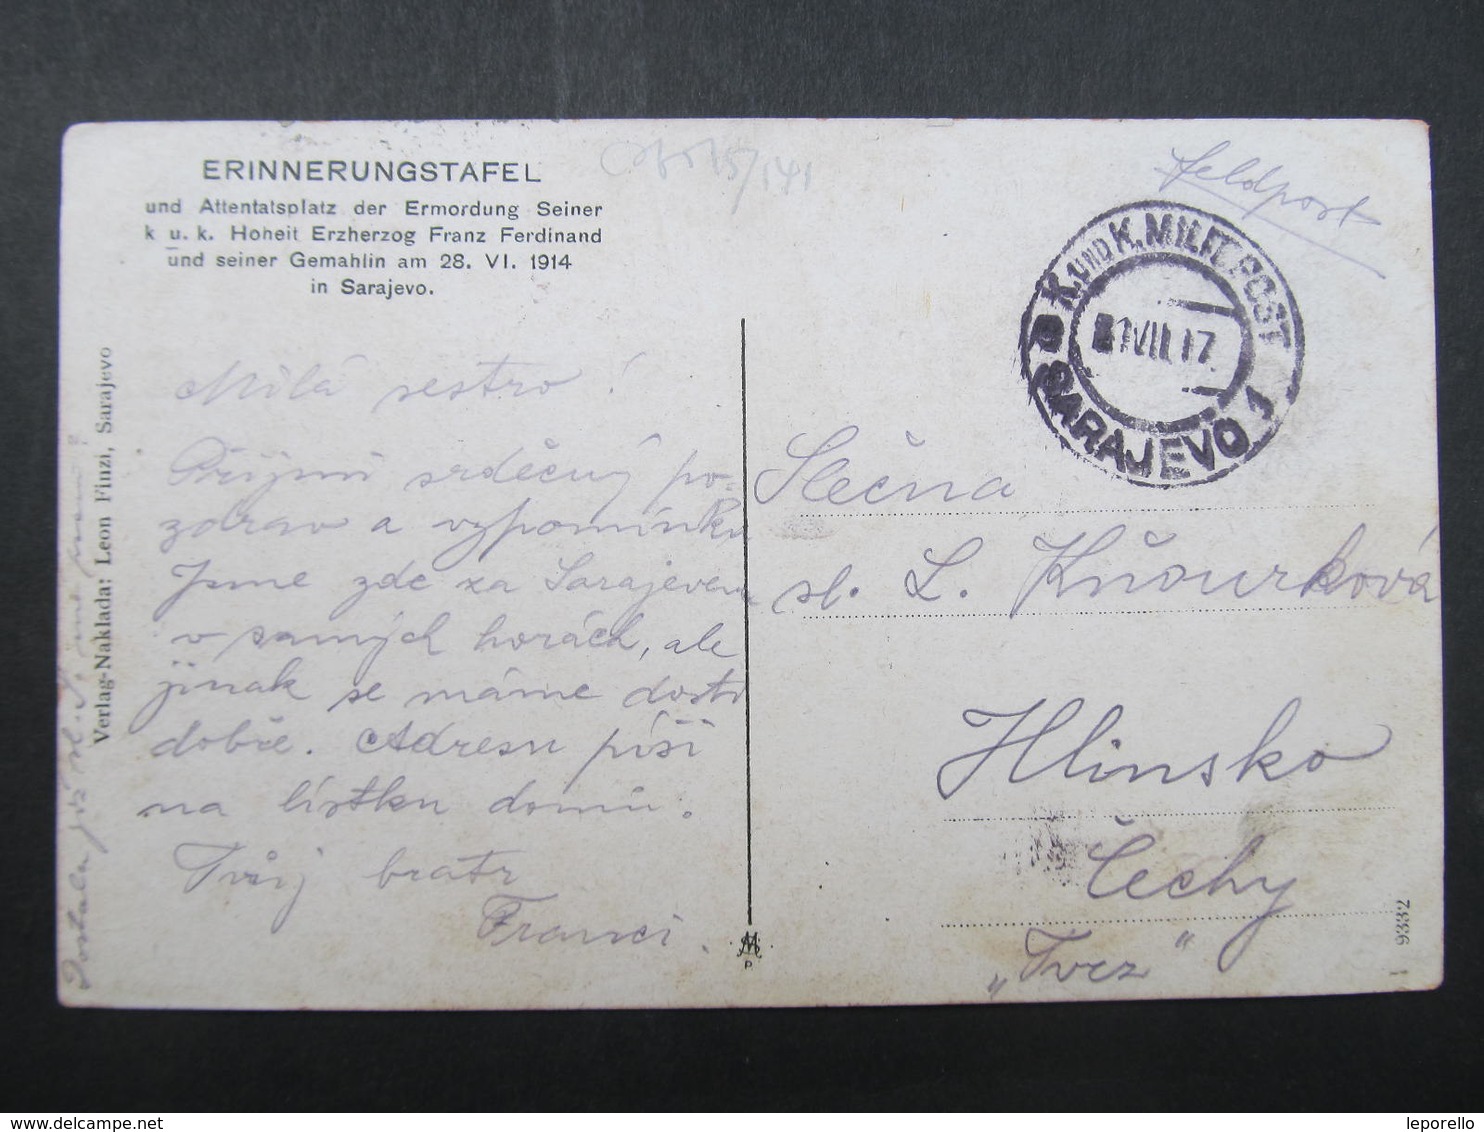 ERINNERUNGSTAFEL
und Attentatsplatz der Ermordung Seiner
k. u. k. Hoheit Erzherzog Franz Ferdinand
und seiner Gemahlin am 28. VI. 1914
in Sarajevo.
Verlag-Naklada: Leon Finzi, Sarajevo
Milá sestro!
Přijmi srdečný po-
zdrav a vzpomínku
Jsme zde za Sarajevem
v samých horách, ale
jinak se máme dosti
dobře. Adresu píši
na lístku domů.
Tvůj bratr
Franci.
Dostala již sl.
Feldpost
K. UND K. MILIT. POST
VII 17
SARAJEVO 1
Slečna
sl. L. Kňourková
Hlinsko
Čechy
„Tvrz"
9332
leporello
www.delcampe.net